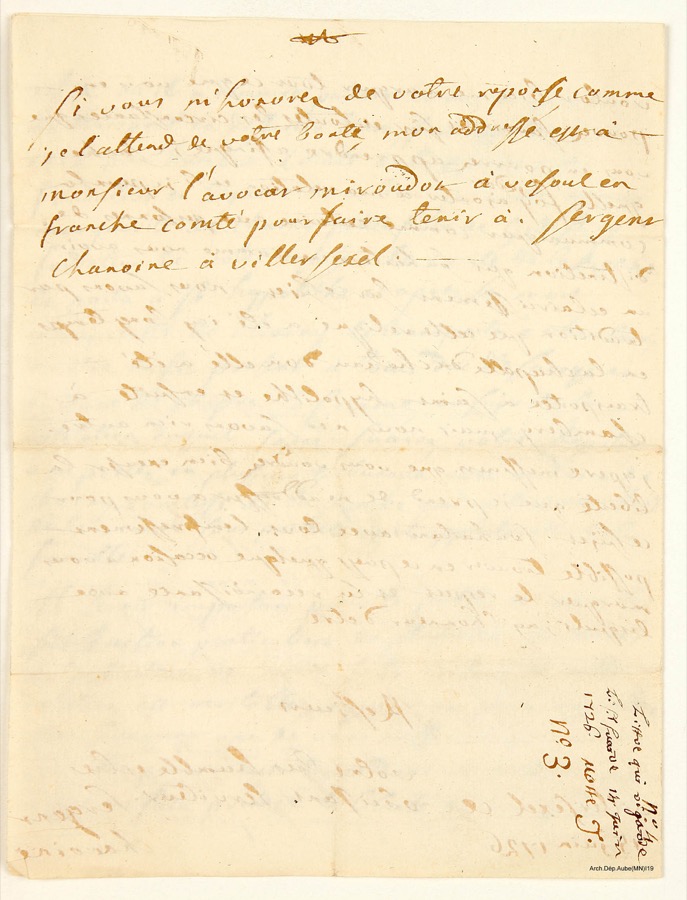 si vous m'honorez de votre reponse comme
je l'attend de votre bonté, mon addresse est à
monsieur l'avocat miroudot à vesoul en
franche comté pour faire tenir à. sergent
chanoine à villersexel.
N° 4
Lettre qui regarde
14 juin
1726. notte J.
N° 3.
Arch.Dép.Aube(MN)I19